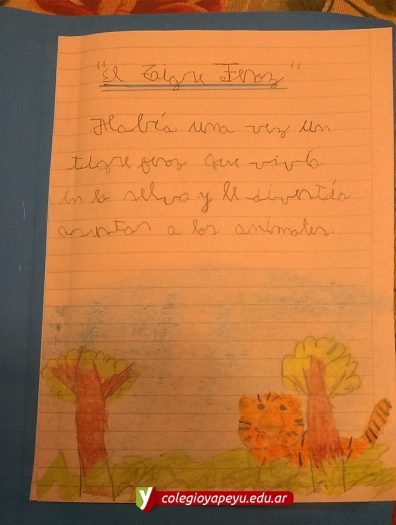 "El Tigre Feroz"
Había una vez un
tigre feroz que vivía
en la selva y le divertía
asustar a los animales.
colegioyapeyu.edu.ar